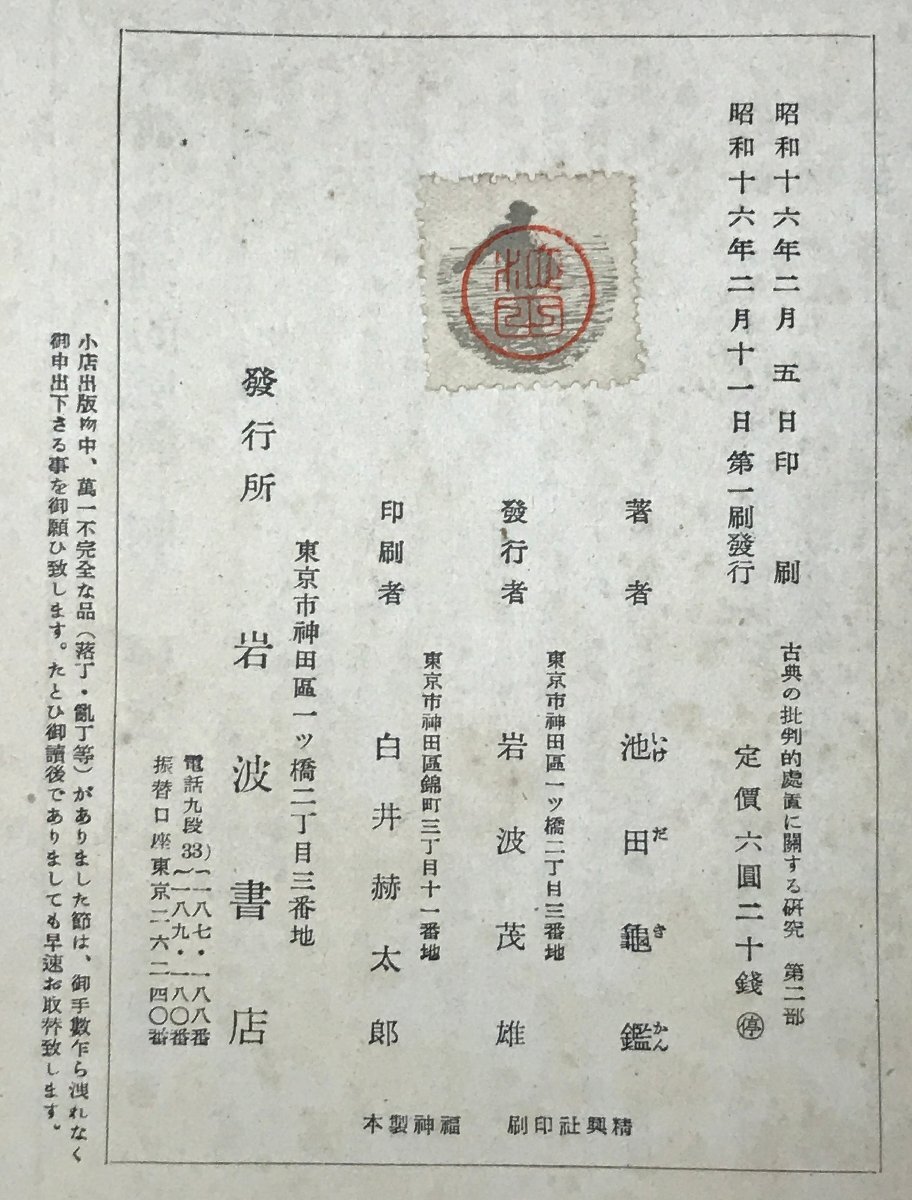 昭和十六年二月　五日印　　刷
昭和十六年二月十一日第一刷發行
古典の批判的處置に關する研究　第二部
定價六圓二十錢 ㊡停
著者
池田龜鑑
いけ　だ　き　かん
發行者
東京市神田區一ツ橋二丁目三番地
岩波茂雄
印刷者
東京市神田區錦町三丁目十一番地
白井赫太郎
發行所
東京市神田區一ツ橋二丁目三番地
岩波書店
電話九段33
一八七・一八八番
一八九・一八〇番
振替口座東京二六二四〇番
精興社印刷　福神製本
小店出版物中、萬一不完全な品（落丁・亂丁等）がありました節は、御手數乍ら洩れなく
御申出下さる事を御願ひ致します。たとひ御讀後でありましても早速お取替致します。